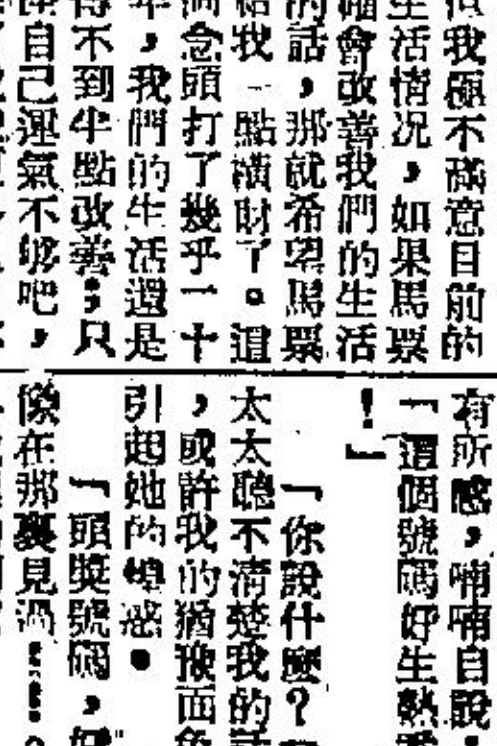 但我極不滿意目前的
生活情况，如果馬票
能會改善我們的生活
的話，那就希望馬票
給我一點橫財了。這
個念頭打了幾乎一十
年，我們的生活還是
得不到半點改善；只
自己運氣不够吧，
有所感，喃喃自說：
「這個號碼好生熟
！」
「你說什麼？
太太聽不清楚我的話
，或許我的猶豫面色
引起她的惶惑。
「頭獎號碼，好
像在那裏見過……。